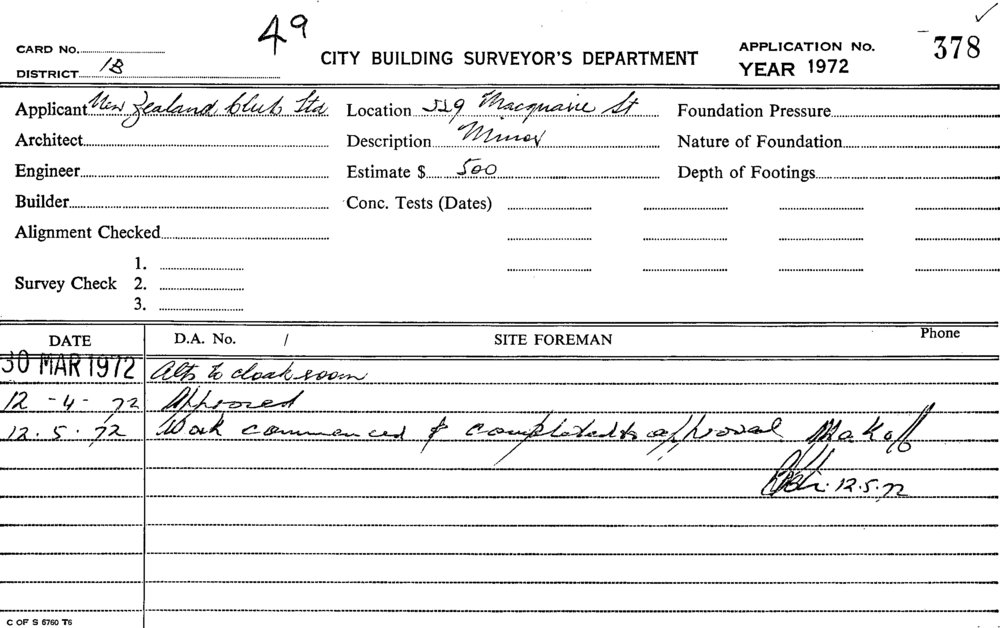 49
CARD No.
DISTRICT 1B
CITY BUILDING SURVEYOR'S DEPARTMENT
APPLICATION No. 378
YEAR 1972
Applicant New Zealand Club Ltd Location 529 Macquarie St Foundation Pressure
Architect Description Minor Nature of Foundation
Engineer Estimate $ 500 Depth of Footings
Builder Conc. Tests (Dates)
Alignment Checked
1.
Survey Check 2.
3.
DATE D.A. No. / SITE FOREMAN Phone
30 MAR 1972 Alts to cloak room
12-4-72 Approved
12.5.72 Work commenced & completed to approval
12.5.72
C OF S 6760 T6